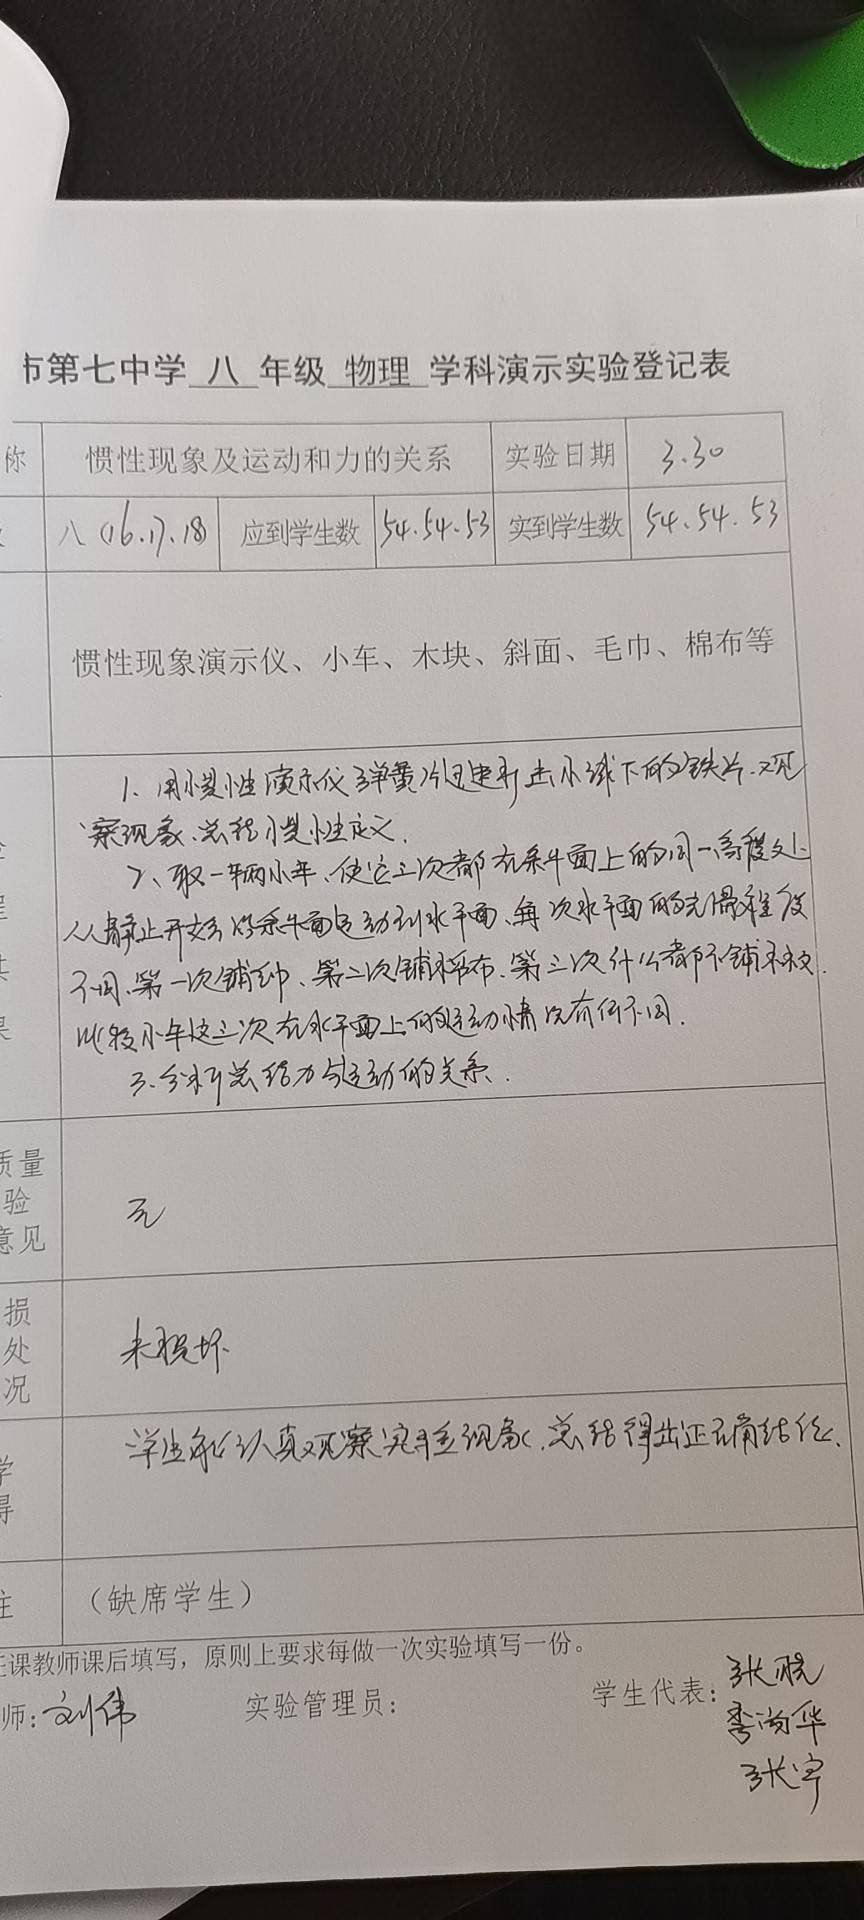 市第七中学 八 年级 物理 学科演示实验登记表
称 惯性现象及运动和力的关系 实验日期 3.30
八(16.17.18) 应到学生数 54.54.53 实到学生数 54.54.53
惯性现象演示仪、小车、木块、斜面、毛巾、棉布等
1. 用惯性演示仪弹簧片迅速打击小球下的铁片.观
察现象.总结惯性定义.
2、取一辆小车、使它三次都在斜面上的同一高度处
从静止开始沿斜面运动到水平面、每次水平面的光滑程度
不同、第一次铺毛巾、第二次铺棉布、第三次什么都不铺木板.
比较小车这三次在水平面上的运动情况有何不同.
3.分析总结力与运动的关系.
质量
验
意见
无
损
处
况
未损坏.
学
得
学生能认真观察实验现象.总结得出正确结论.
注 (缺席学生)
任课教师课后填写，原则上要求每做一次实验填写一份。
师: 刘伟 实验管理员: 学生代表: 张晓
李尚华
张宇